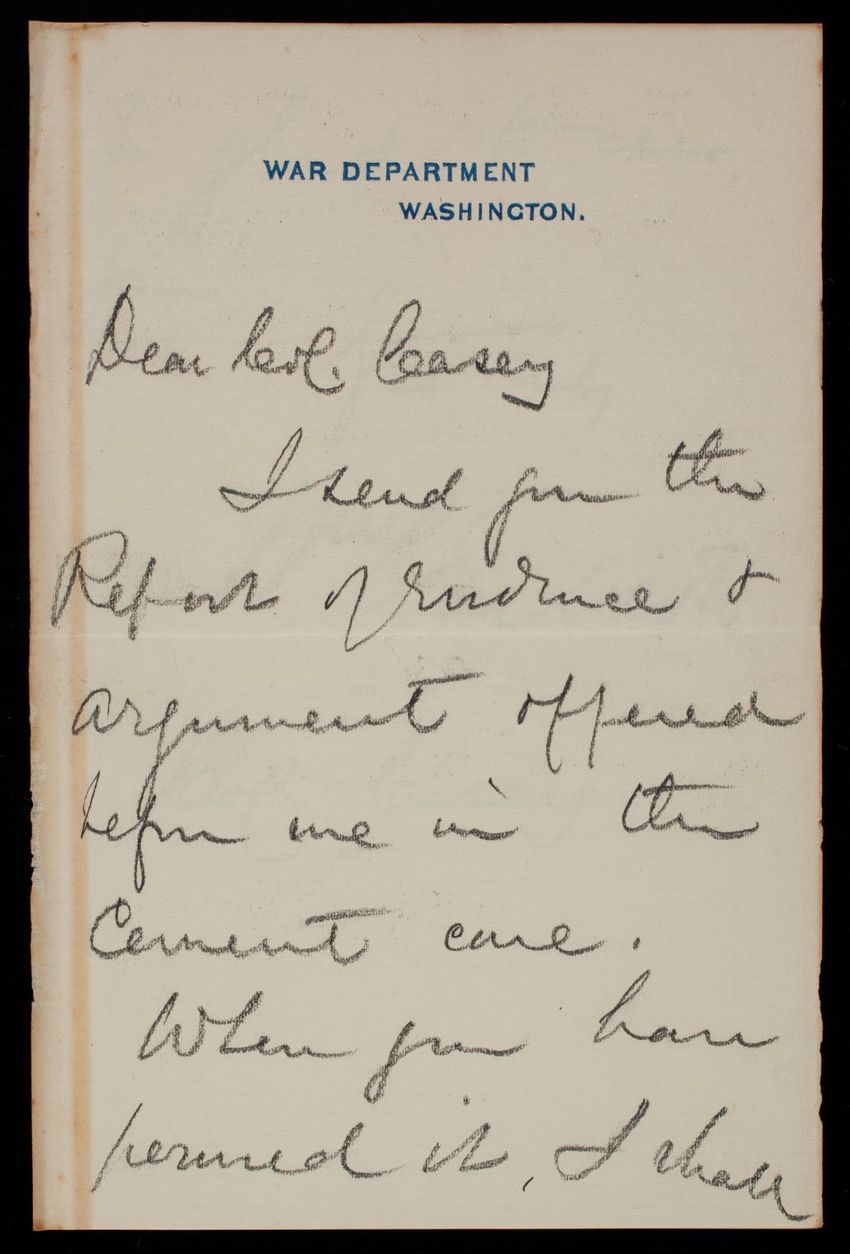 WAR DEPARTMENT
WASHINGTON.
Dear Col. Casey
I send you the
Report of Evidence &
argument offered
before me in the
Cement case.
When you have
perused it, I shall